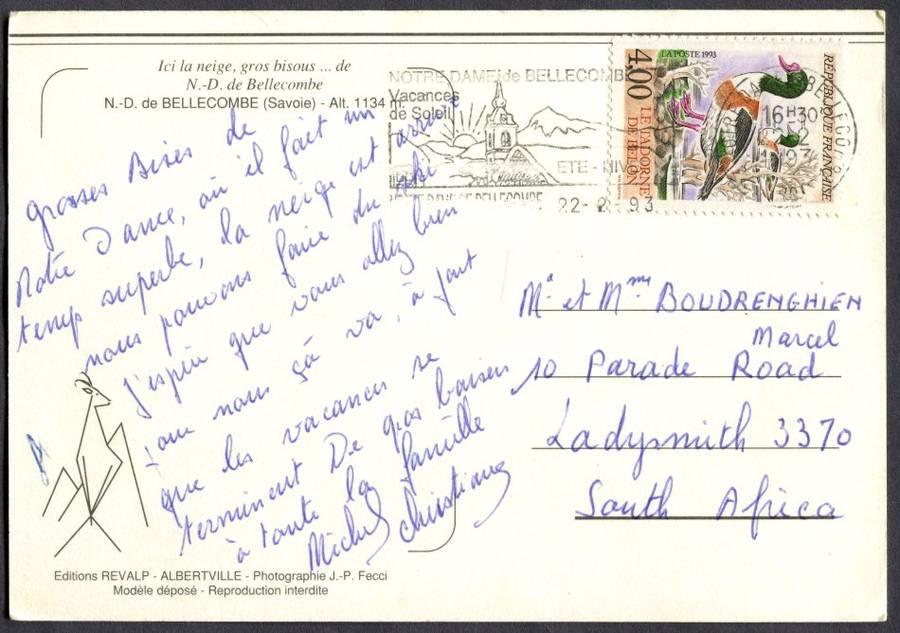 Ici la neige, gros bisous ... de
N.-D. de Bellecombe
N.-D. de BELLECOMBE (Savoie) - Alt. 1134 m.
grosses Bises de
Notre Dame, où il fait un
temps superbe, la neige est arrivé
nous pouvons faire du ski
J'espère que vous allez bien
pour nous çà va, à part
que les vacances se
terminent De gros baisers
à toute la famille
Michel Christiane
Editions REVALP - ALBERTVILLE - Photographie J.-P. Fecci
Modèle déposé - Reproduction interdite
NOTRE DAME de BELLECOMBE
Vacances
de Soleil
ETE - HIV
22-2-93
LA POSTE 1993
4,00
LE TADORNE
DE BELON
RÉPUBLIQUE FRANÇAISE
16H30
Mr et Mme BOUDRENGHIEN
Marcel
10 Parade Road
Ladysmith 3370
South Africa